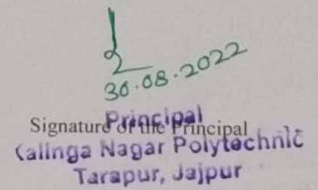 30.08.2022
Principal
Signature of the Principal
Kalinga Nagar Polytechnic
Tarapur, Jajpur